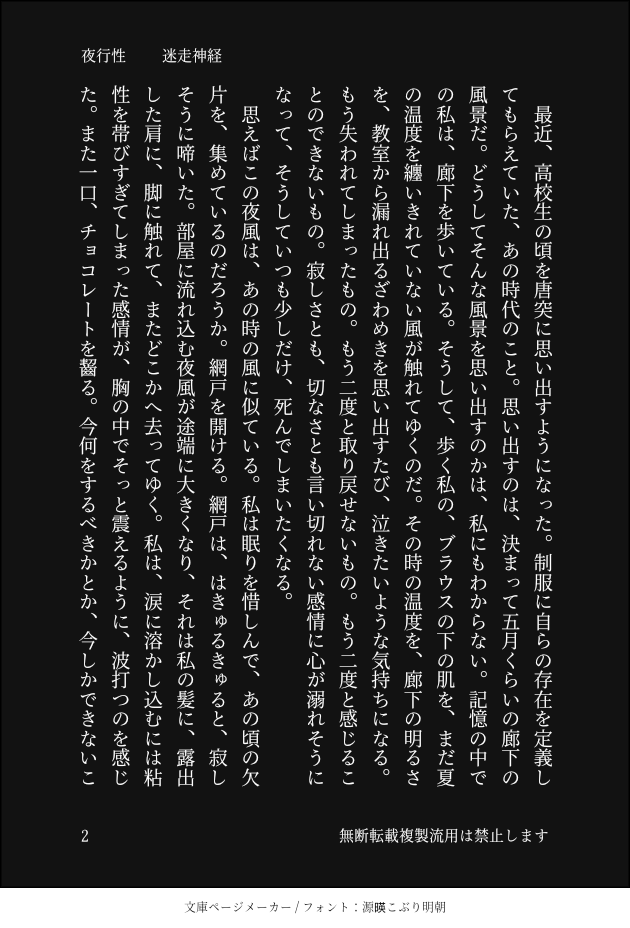 夜行性　　迷走神経
　最近、高校生の頃を唐突に思い出すようになった。制服に自らの存在を定義し
てもらえていた、あの時代のこと。思い出すのは、決まって五月くらいの廊下の
風景だ。どうしてそんな風景を思い出すのかは、私にもわからない。記憶の中で
の私は、廊下を歩いている。そうして、歩く私の、ブラウスの下の肌を、まだ夏
の温度を纏いきれていない風が触れてゆくのだ。その時の温度を、廊下の明るさ
を、教室から漏れ出るざわめきを思い出すたび、泣きたいような気持ちになる。
もう失われてしまったもの。もう二度と取り戻せないもの。もう二度と感じるこ
とのできないもの。寂しさとも、切なさとも言い切れない感情に心が溺れそうに
なって、そうしていつも少しだけ、死んでしまいたくなる。
　思えばこの夜風は、あの時の風に似ている。私は眠りを惜しんで、あの頃の欠
片を、集めているのだろうか。網戸を開ける。網戸は、はきゅるきゅると、寂し
そうに啼いた。部屋に流れ込む夜風が途端に大きくなり、それは私の髪に、露出
した肩に、脚に触れて、またどこかへ去ってゆく。私は、涙に溶かし込むには粘
性を帯びすぎてしまった感情が、胸の中でそっと震えるように、波打つのを感じ
た。また一口、チョコレートを齧る。今何をするべきかとか、今しかできないこ
無断転載複製流用は禁止します
2
文庫ページメーカー / フォント：源暎こぶり明朝